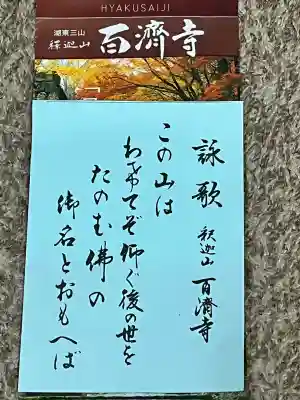 HYAKUSAIJI
湖東三山
釋迦山
百濟寺
詠歌 釈迦山 百済寺
この山は
わきてぞ仰ぐ後の世を
たのむ佛の
御名とおもへば